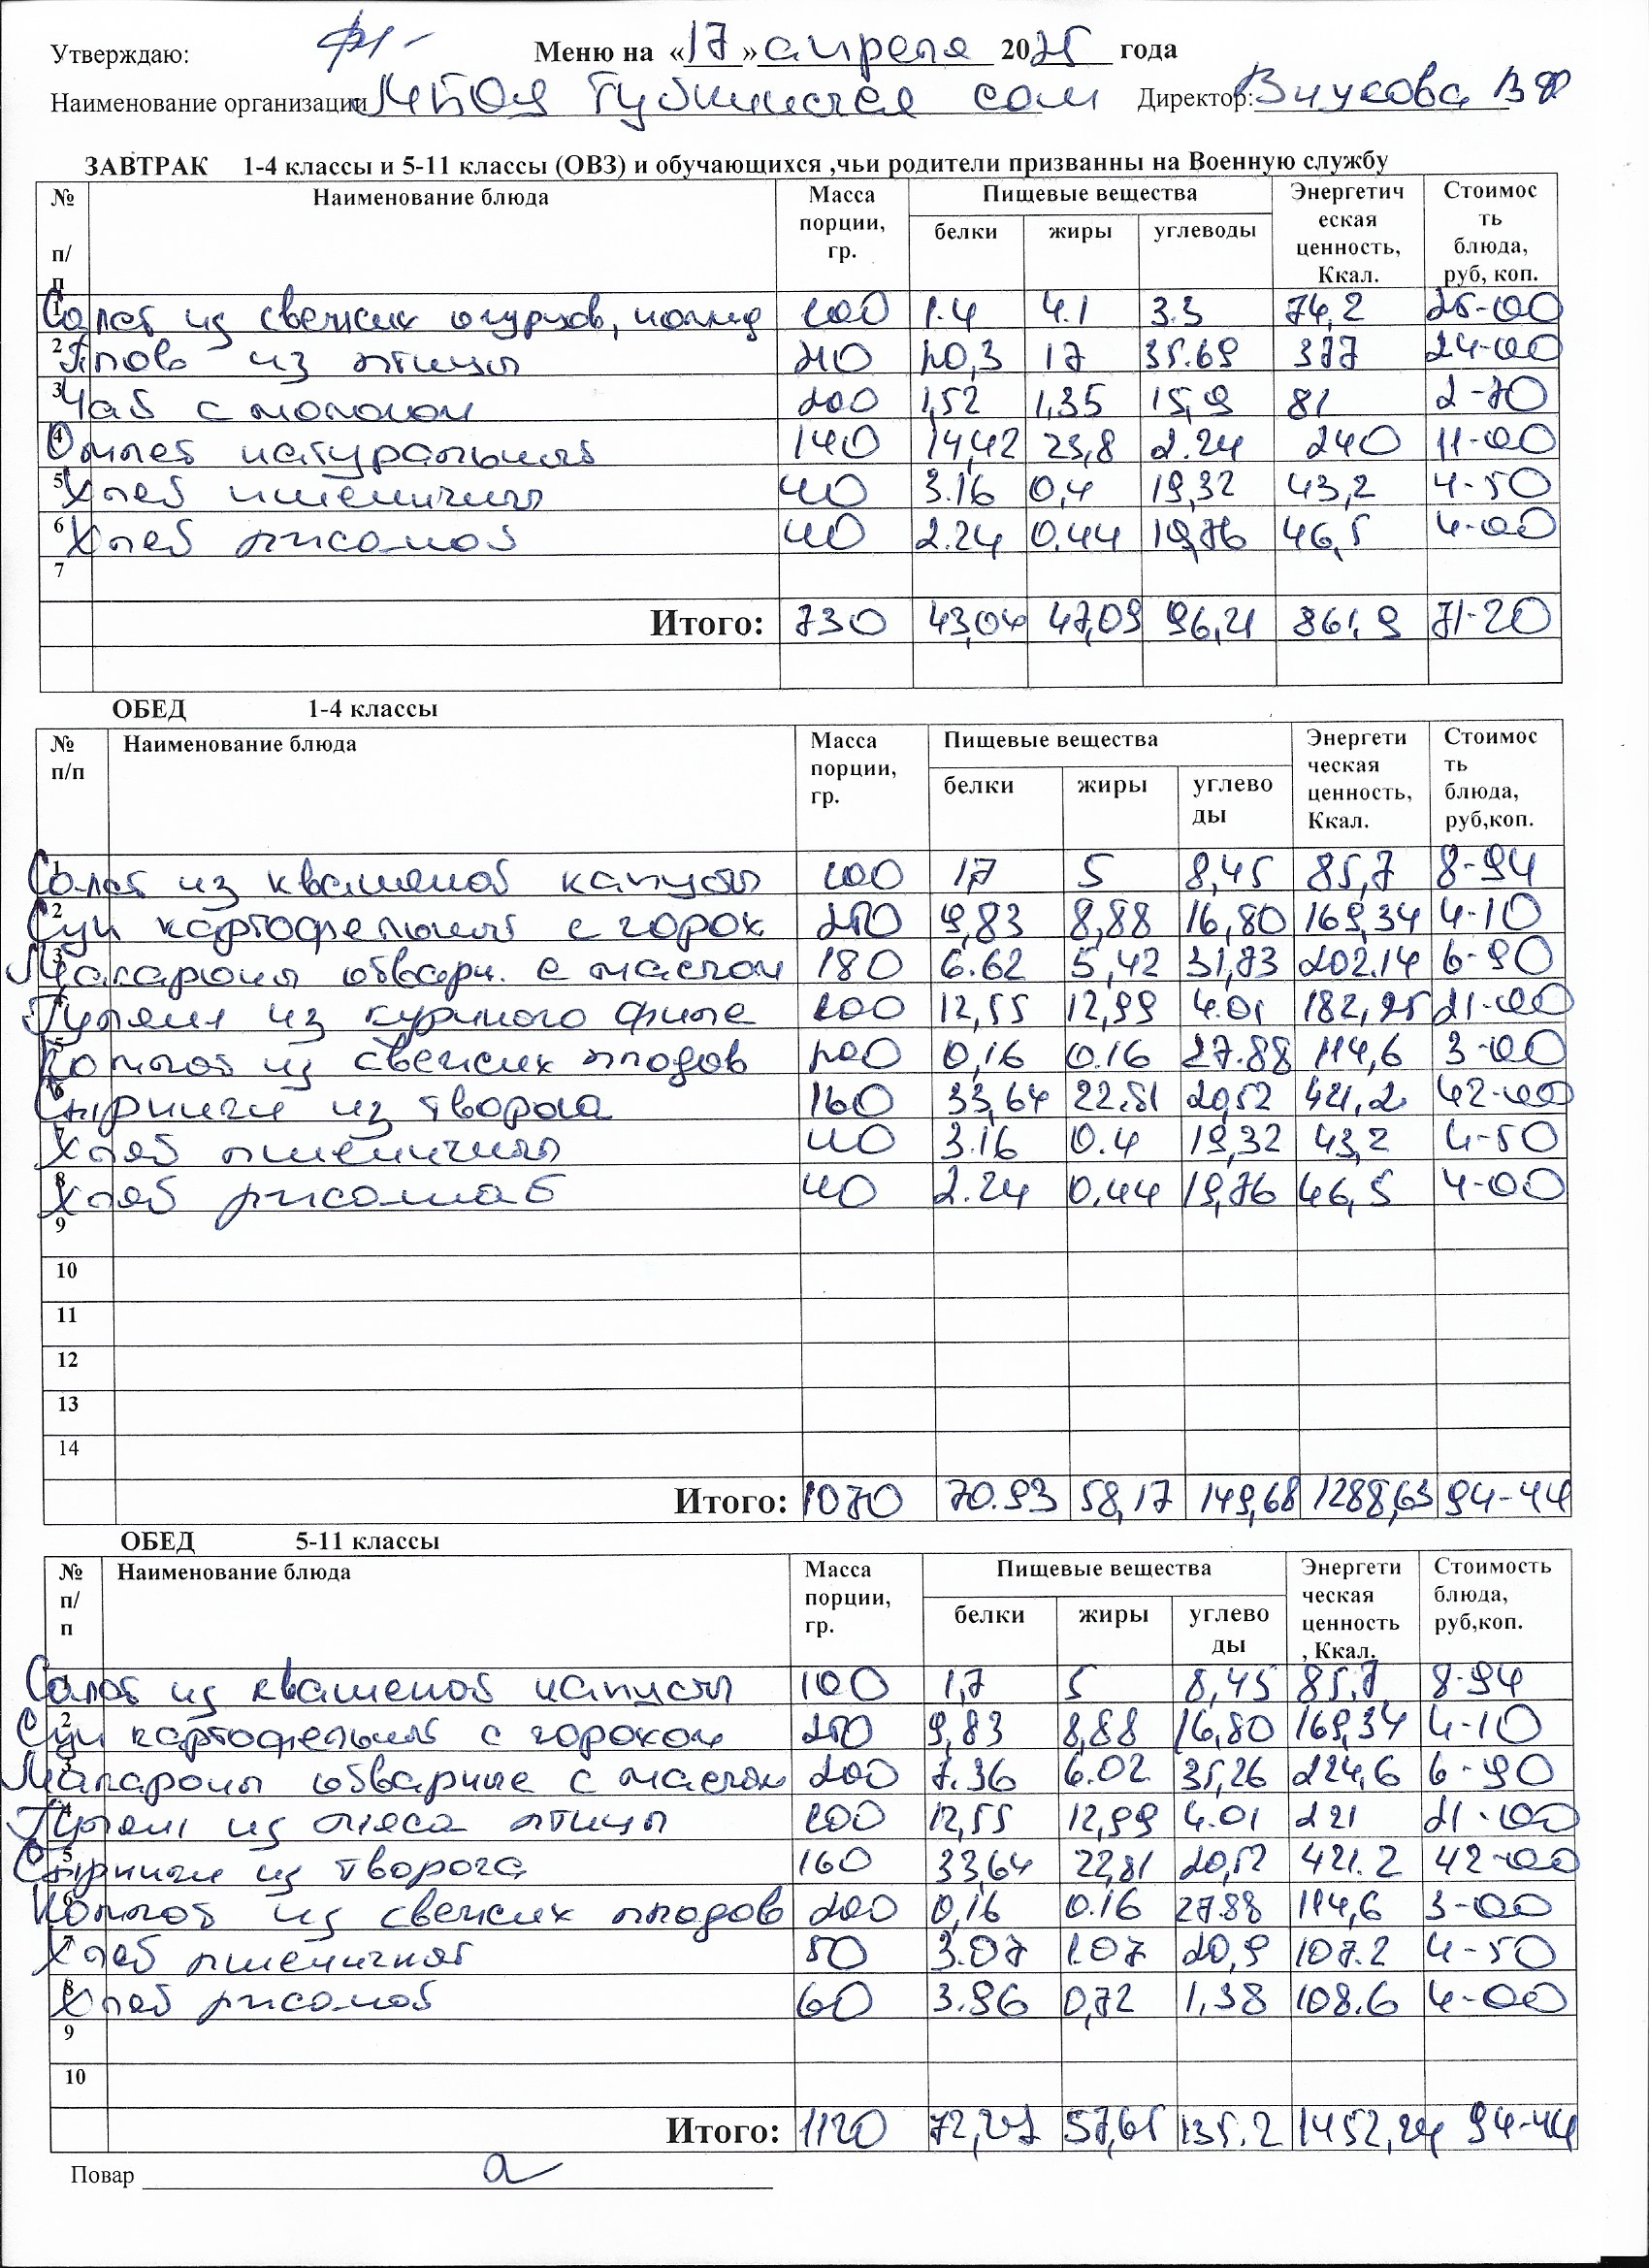 Утверждаю: Меню на «17» апреля 2025 года
Наименование организации МБОУ Губкинская сош Директор: Внукова В Ф
ЗАВТРАК 1-4 классы и 5-11 классы (ОВЗ) и обучающихся ,чьи родители призванны на Военную службу
№ п/п Наименование блюда Масса порции, гр. Пищевые вещества Энергетическая ценность, Ккал. Стоимость блюда, руб, коп.
белки жиры углеводы
1 Салат из свежих огурцов, помид 100 1.4 4.1 3.3 74,2 25-00
2 Плов из птицы 210 20,3 17 35.69 377 24-00
3 Чай с молоком 200 1,52 1,35 15,9 81 2-70
4 Омлет натуральный 140 14,42 23,8 2.24 240 11-00
5 Хлеб пшеничный 40 3.16 0,4 19,32 43,2 4-50
6 Хлеб ржаной 40 2.24 0.44 19,76 46,5 4-00
7
Итого: 730 43,04 47,09 96,21 861,9 71-20
ОБЕД 1-4 классы
№ п/п Наименование блюда Масса порции, гр. Пищевые вещества Энергетическая ценность, Ккал. Стоимость блюда, руб,коп.
белки жиры углеводы
1 Салат из квашеной капусты 100 1,7 5 8,45 85,7 8-94
2 Суп картофельный с горох 250 9,83 8,88 16,80 169,34 4-10
3 Макароны отварн. с маслом 180 6.62 5,42 31,73 202.14 6-90
4 Гуляш из куриного филе 100 12,55 12,99 4.01 182,95 21-00
5 Компот из свежих плодов 200 0,16 0.16 27.88 114,6 3-00
6 Сырники из творога 160 33,64 22.81 20,52 421,2 42-00
7 Хлеб пшеничный 40 3.16 0.4 19,32 43,2 4-50
8 Хлеб ржаной 40 2.24 0,44 19,76 46,5 4-00
9
10
11
12
13
14
Итого: 1070 70.93 58,17 149,68 1288,63 94-44
ОБЕД 5-11 классы
№ п/п Наименование блюда Масса порции, гр. Пищевые вещества Энергетическая ценность, Ккал. Стоимость блюда, руб,коп.
белки жиры углеводы
1 Салат из квашеной капусты 100 1,7 5 8,45 85,7 8-94
2 Суп картофельный с горохом 250 9,83 8,88 16,80 169,34 4-10
3 Макароны отварные с маслом 200 7.36 6.02 35,26 224,6 6-90
4 Гуляш из мяса птицы 100 12,55 12,99 4.01 221 21-00
5 Сырники из творога 160 33,64 22,81 20,52 421.2 42-00
6 Компот из свежих плодов 200 0,16 0.16 27.88 114,6 3-00
7 Хлеб пшеничный 50 3.07 1.07 20,9 107.2 4-50
8 Хлеб ржаной 60 3.96 0,72 1,38 108.6 4-00
9
10
Итого: 1120 72,27 57,65 135.2 1452,24 94-44
Повар